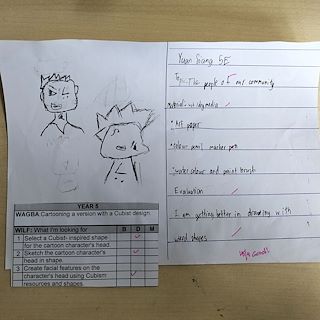 YEAR 5
WAGBA Cartooning a version with a Cubist design.
WILF: What I'm looking for B D M
1 Select a Cubist- inspired shape
for the cartoon character's head.
2 Sketch the cartoon character's
head in shape.
3 Create facial features on the
character's head using Cubism
resources and shapes
5E
Topic: The people of our community
material
Art paper
colour pencil marker pen
watercolour and paint brush
Evaluation
I am getting better in drawing with
weird shapes